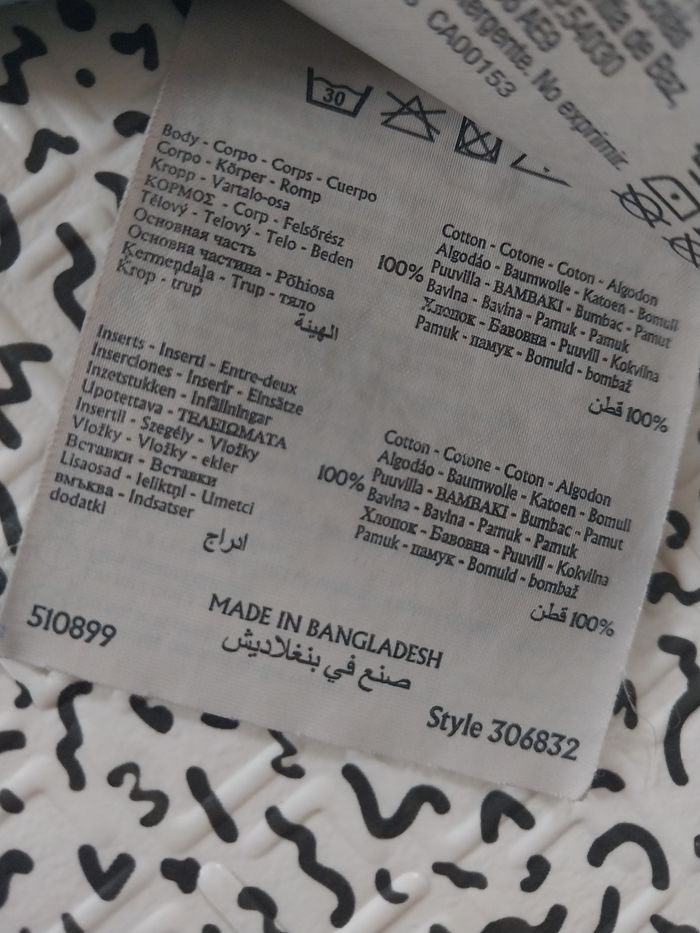 54030
AE9
de Baz,
CA00153
ergente. No exprimir.
30
Body - Corpo - Corps - Cuerpo
Corpo - Körper - Romp
Kropp - Vartalo-osa
ΚΟΡΜΟΣ - Corp - Felsőrész
Tělový - Telový - Telo - Beden
Основная часть
Основна частина - Põhiosa
Ķermeņdaļa - Trup - тяло
Krop - trup
الهيئة
100%
Cotton - Cotone - Coton - Algodon
Algodão - Baumwolle - Katoen - Bomull
Puuvilla - BAMBAKI - Bumbac - Pamut
Bavlna - Bavlna - Pamuk - Pamuk
Хлопок - Бавовна - Puuvill - Kokvilna
Pamuk - памук - Bomuld - bombaž
100% قطن
Inserts - Inserti - Entre-deux
Inserciones - Inserir - Einsätze
Inzetstukken - Infällningar
Upotettava - ΤΕΛΕΙΩΜΑΤΑ
Insertii - Szegély - Vložky
Vložky - Vložky - ekler
Вставки - Вставки
Lisaosad - Ieliktņi - Umetci
вмъква - Indsatser
dodatki
ادراج
100%
Cotton - Cotone - Coton - Algodon
Algodão - Baumwolle - Katoen - Bomull
Puuvilla - BAMBAKI - Bumbac - Pamut
Bavlna - Bavlna - Pamuk - Pamuk
Хлопок - Бавовна - Puuvill - Kokvilna
Pamuk - памук - Bomuld - bombaž
100% قطن
510899
MADE IN BANGLADESH
صنع في بنغلاديش
Style 306832